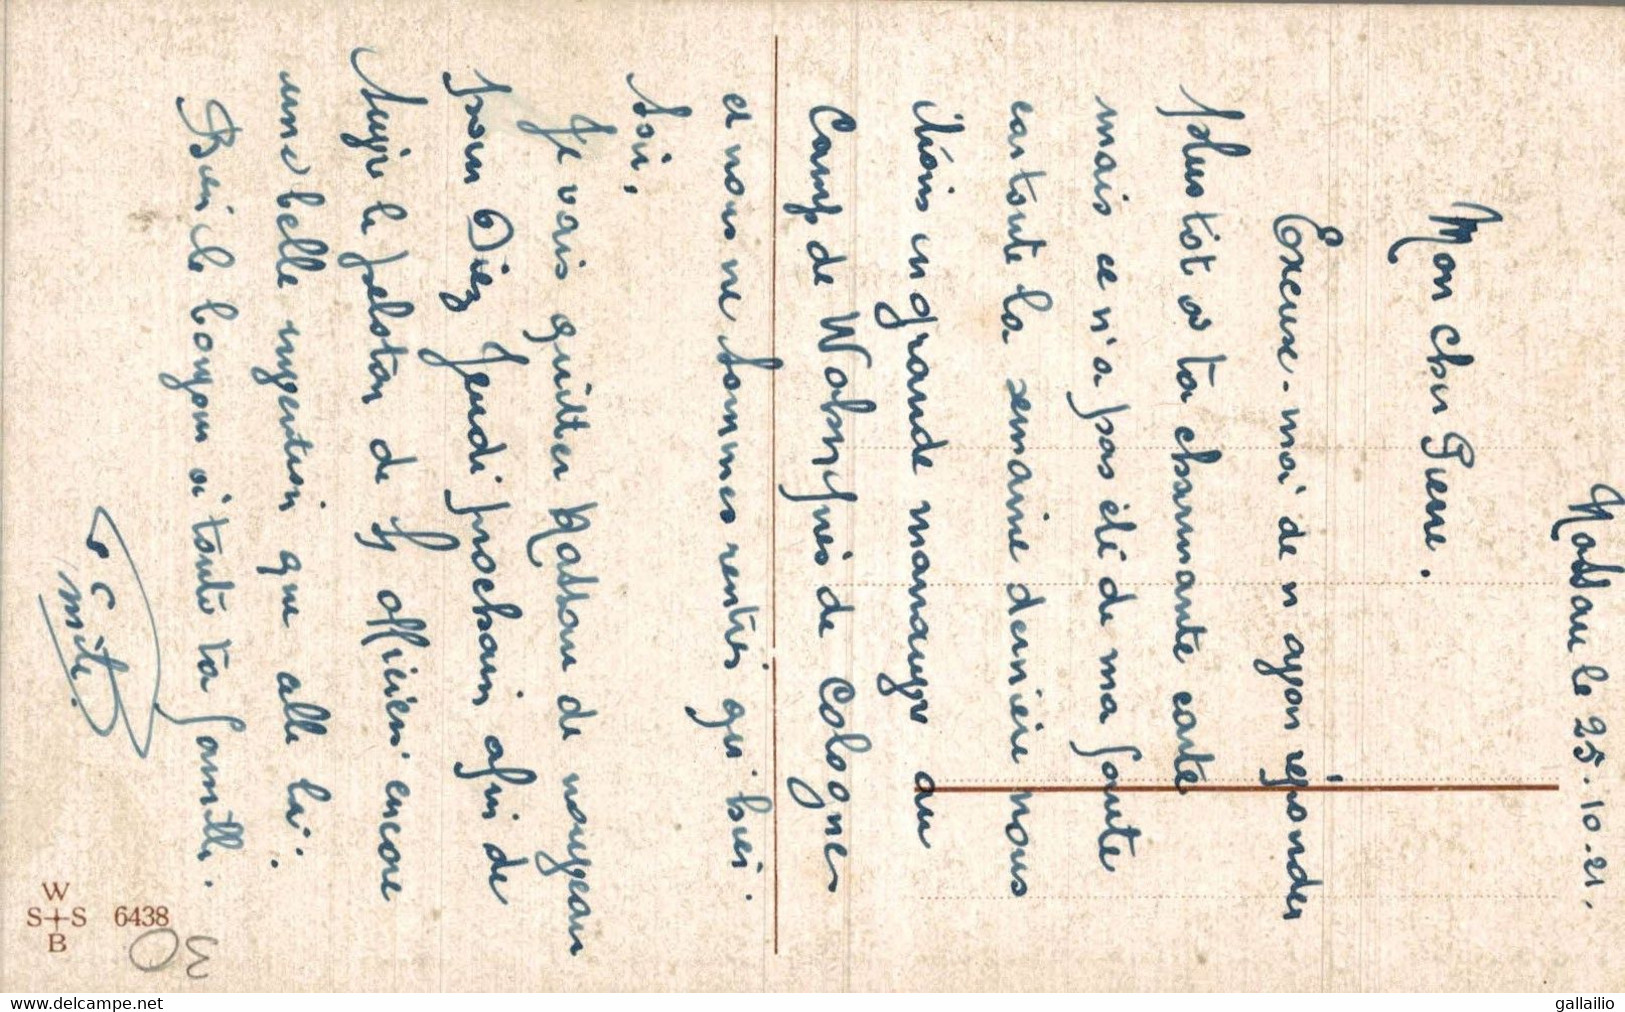 Nassau le 25.10.21.
Mon cher Pierre.
Excuse-moi de n ayon réponder
plus tôt a ta charmante carte
mais ce n'a pas été de ma faute
car toute la semaine dernière nous
étions en grande manœuvre au
Camp de Wahn près de Cologne
et nous ne sommes rentrés qu'hier
soir,
Je vais quitter Nassau de nouveau
pour Diez Jeudi prochain afin de
le peloton de officiers encore
une belle que celle là.
Bien le bonjour à toute ta famille.
W
S+S 6438
B
30
www.delcampe.net
gallailio